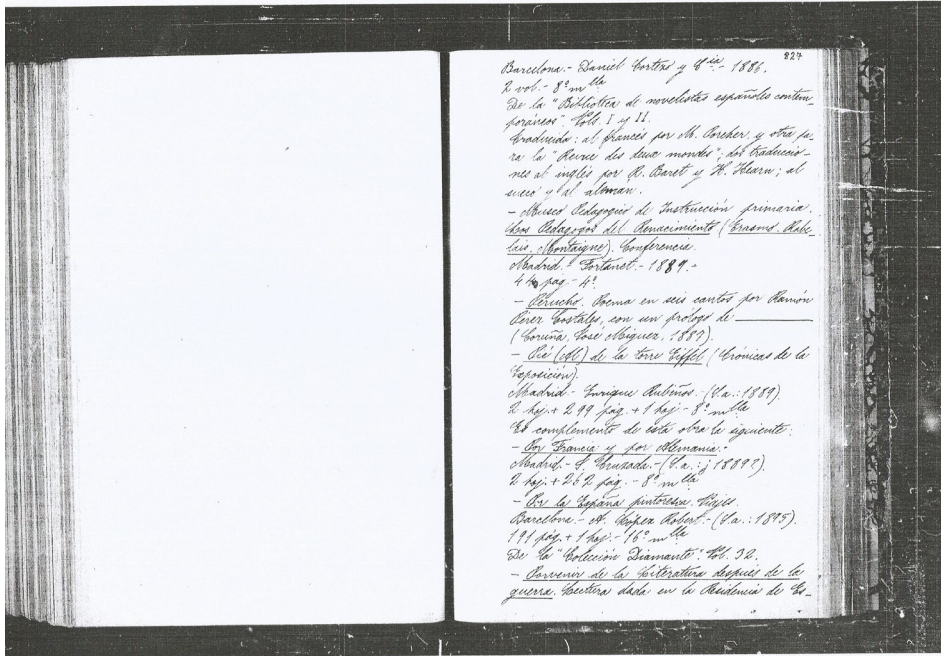 827
Barcelona.- Daniel Cortezo y Cía.- 1886.
2 vol.- 8º mlla
De la "Biblioteca de novelistas españoles contem-
poráneos" Vols. I y II.
Traducida: al francés por M. Porcher y otra pa-
ra la "Revue des deux mondes"; dos traduccio-
nes al inglés por R. Baret y H. Hearn; al
sueco y al alemán.
- Museo Pedagógico de Instrucción primaria.
Los Pedagogos del Renacimiento (Erasmo, Rabe-
lais, Montaigne). Conferencia.
Madrid.- Fortanet.- 1889.-
44 pag.- 4º.
- Perucho. Poema en seis cantos por Ramón
Pérez Costales, con un prólogo de ________
(Coruña, José Miguez, 1887).
- Pié (Al) de la torre Eiffel (Crónicas de la
Exposición).
Madrid.- Enrique Rubiños.- (S.a.: 1889).
2 hoj. + 299 pág. + 1 hoj.- 8º mlla
Es complemento de esta obra la siguiente:
- Por Francia y por Alemania.-
Madrid.- S. Cruzada.- (S.a.: ¿1889?).
2 hoj. + 262 pág.- 8º mlla
- Por la España pintoresca. Viajes.
Barcelona.- A. López Robert.- (S.a.: 1895).
191 pág. + 1 hoj.- 16º mlla
De la "Colección Diamante". Vol. 32.
- Porvenir de la Literatura después de la
guerra. Lectura dada en la Residencia de Es-